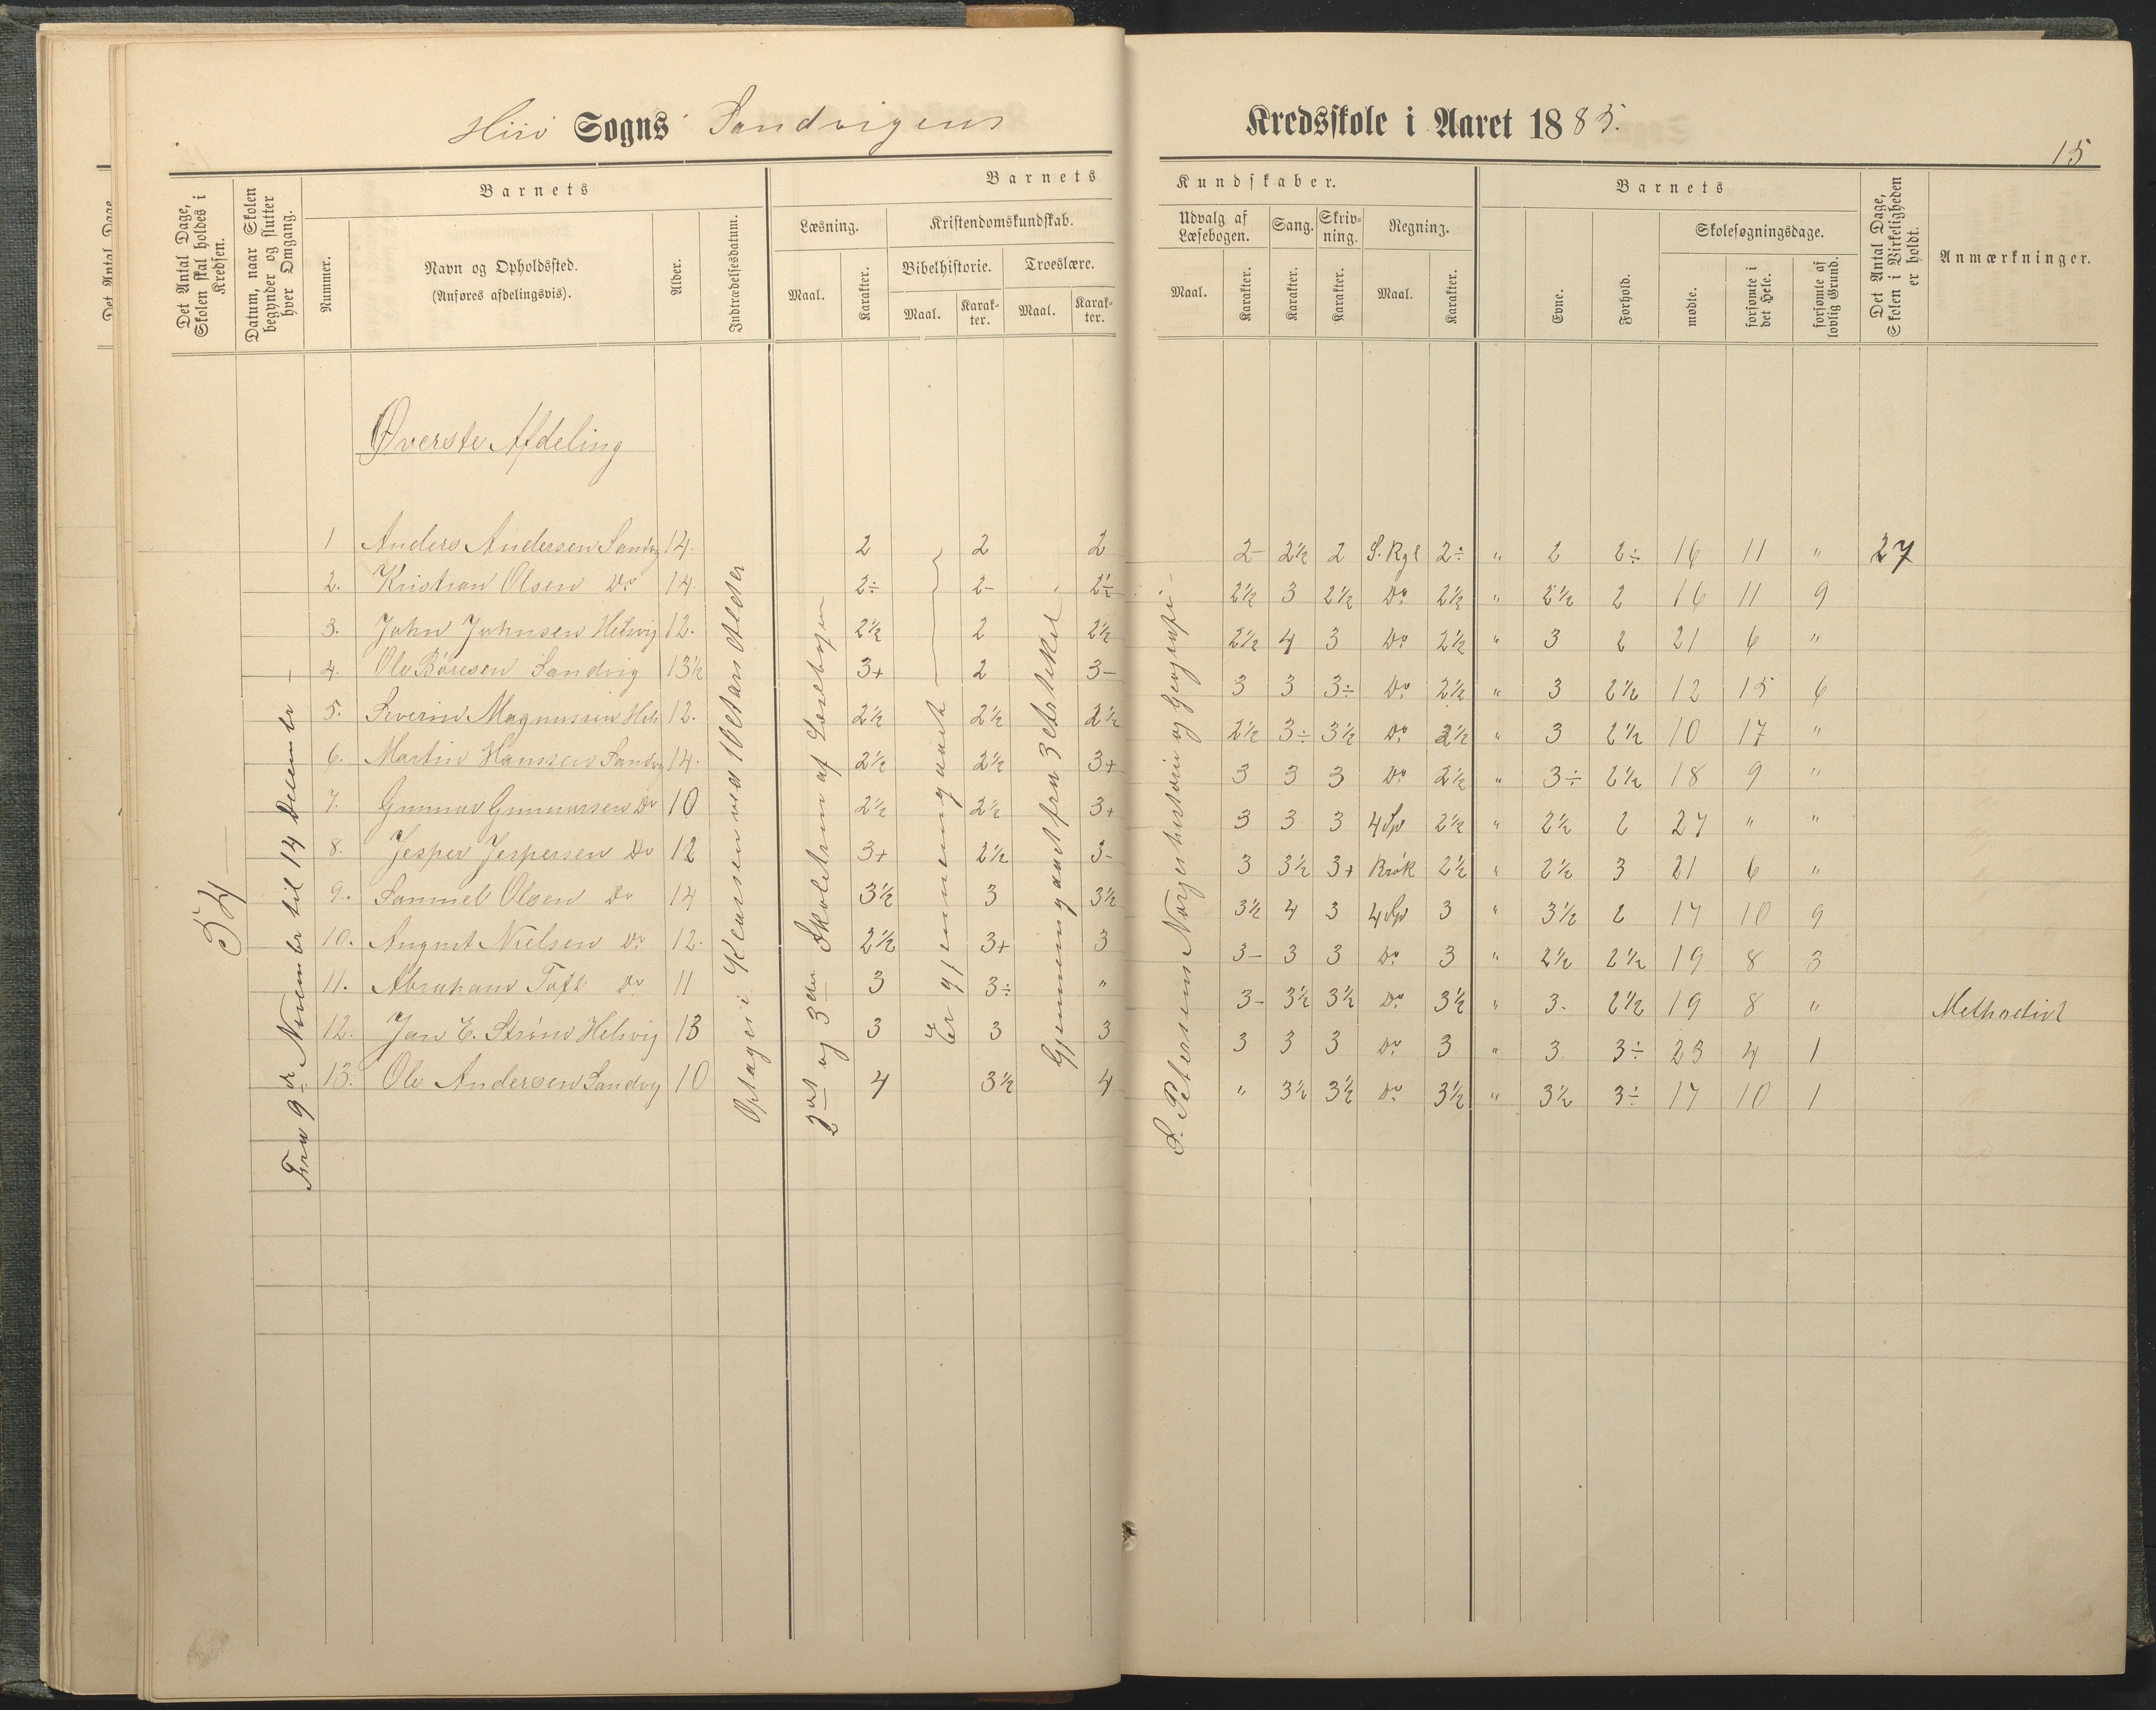 Hisö Sogns Sandvigens Kredsskole i Aaret 1885.
15
Det Antal Dage, Skolen skal holdes i Kredsen.
Datum, naar Skolen begynder og slutter hver Omgang.
Barnets
Nummer.
Navn og Opholdssted.
(Anføres afdelingsvis).
Alder.
Indtrædelsesdatum.
Barnets Kundskaber.
Læsning.
Maal.
Karakter.
Kristendomskundskab.
Bibelhistorie.
Maal.
Karakter.
Troeslære.
Maal.
Karakter.
Udvalg af Læsebogen.
Maal.
Karakter.
Sang.
Karakter.
Skrivning.
Karakter.
Regning.
Maal.
Karakter.
Barnets
Evne.
Forhold.
Skolesøgningsdage.
mødte.
forsømte i det Hele.
forsømte af lovlig Grund.
Det Antal Dage, Skolen i Virkeligheden er holdt.
Anmærkninger.
Det Antal Dage
Øverste Afdeling
54
Fra 9de November til 14 December
Optages i Klassen ved 10 Aars Alder
2det og 3die Skoletrin af Læsebogen
Er gjennemgaaet
Gjennemgaaet fra 3 Artikel
S. Petersens Norgeshistorie og Geografi
1 Anders Andersen Sandvig 14. 2 2 2 2- 2½ 2 S. Rgl 2÷ " 2 2÷ 16 11 " 27
2. Kristian Olsen Do 14. 2÷ 2- 2½ 2½ 3 2½ Do 2½ " 2½ 2 16 11 9
3. John Johnsen Helsvig 12. 2½ 2 2½ 2½ 4 3 Do 2½ " 3 2 21 6 "
4. Ole Böresen Sandvig 13½ 3+ 2 3- 3 3 3÷ Do 2½ " 3 2½ 12 15 6
5. Severin Magnussen Hels 12. 2½ 2½ 2½ 2½ 3÷ 3½ Do 2½ " 3 2½ 10 17 "
6. Martin Hanssen Sandvig 14. 2½ 2½ 3+ 3 3 3 Do 2½ " 3÷ 2½ 18 9 "
7. Gunnar Gunnarsen Do 10 2½ 2½ 3+ 3 3 3 4 Sp 2½ " 2½ 2 27 " "
8. Jesper Jespersen Do 12 3+ 2½ 3- 3 3½ 3+ Brök 2½ " 2½ 3 21 6 "
9. Samuel Olsen Do 14 3½ 3 3½ 3½ 4 3 4 Sp 3 " 3½ 2 17 10 9
10. August Nielsen Do 12. 2½ 3+ 3 3- 3 3 Do 3 " 2½ 2½ 19 8 3
11. Abraham Toft Do 11 3 3÷ " 3- 3½ 3½ Do 3½ " 3. 2½ 19 8 " Methodist
12. Jan E. Ström Helsvig 13 3 3 3 3 3 3 Do 3 " 3 3÷ 23 4 1
13. Ole Andersen Sandvig 10 4 3½ 4 " 3½ 3½ Do 3½ " 3½ 3÷ 17 10 1